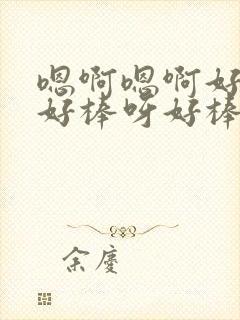 嗯啊嗯啊好
好棒呀好棒
余庆